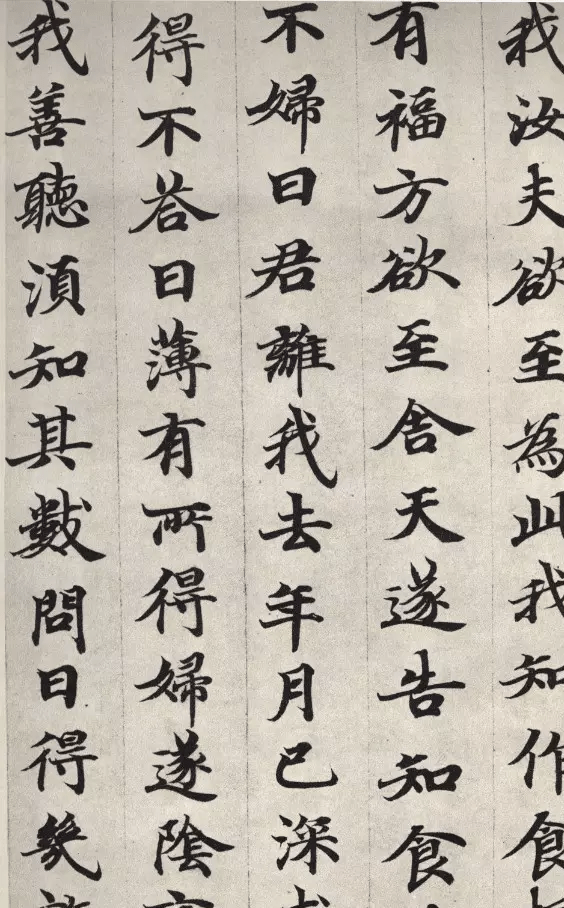 我汝夫欲至為此我知作食
有福方欲至舍天遂告知食
不婦曰君離我去年月已深
得不答曰薄有所得婦遂陰
我善聽湏知其數問曰得幾